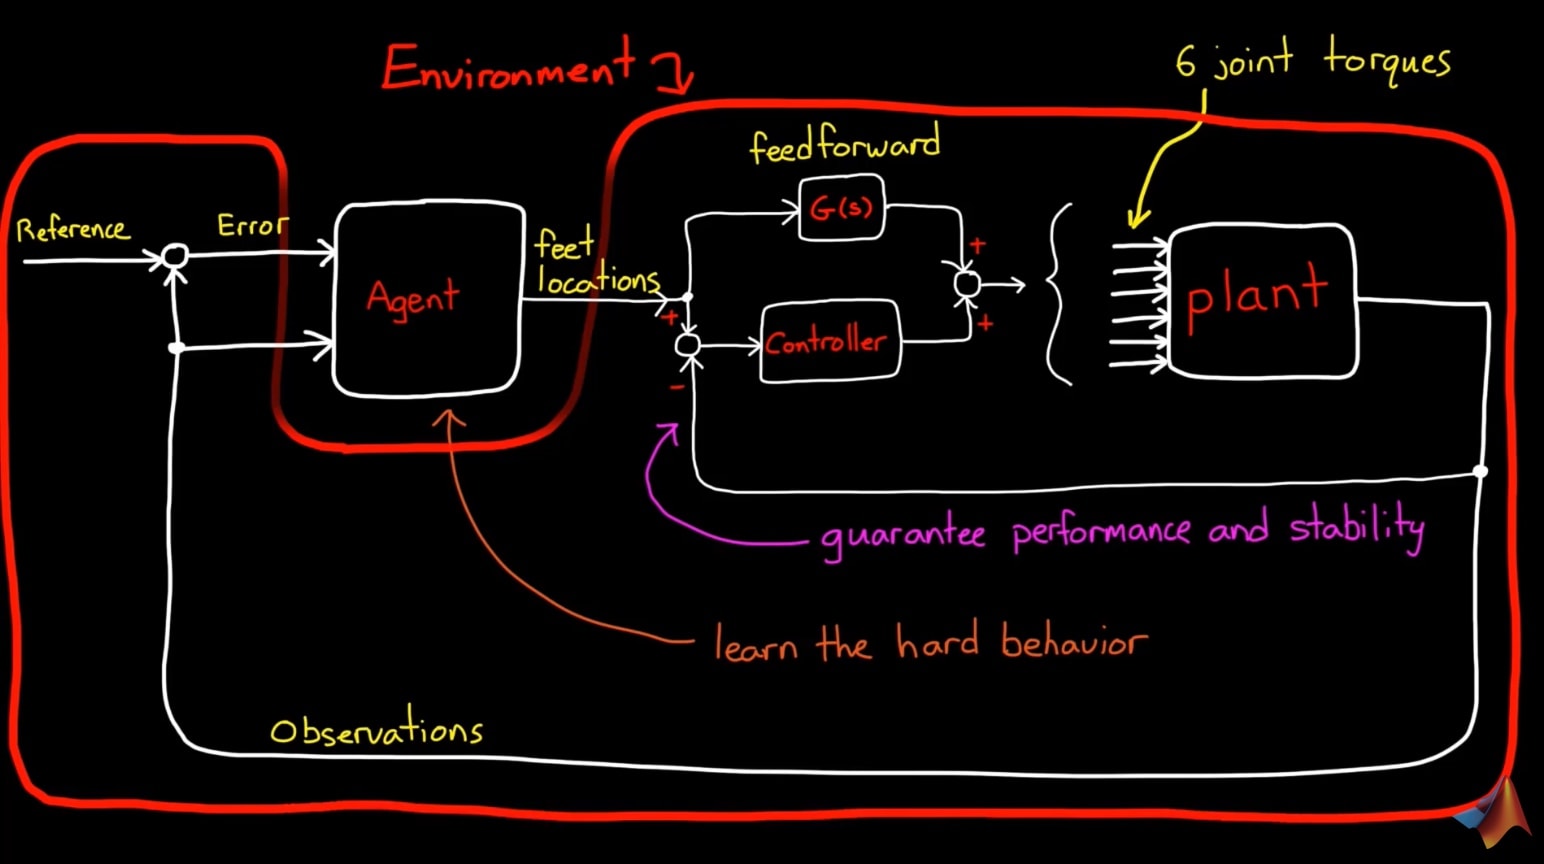 Environment
6 joint torques
feedforward
Reference
Error
G(s)
feet
locations
+
Agent
plant
+
+
Controller
-
guarantee performance and stability
learn the hard behavior
Observations